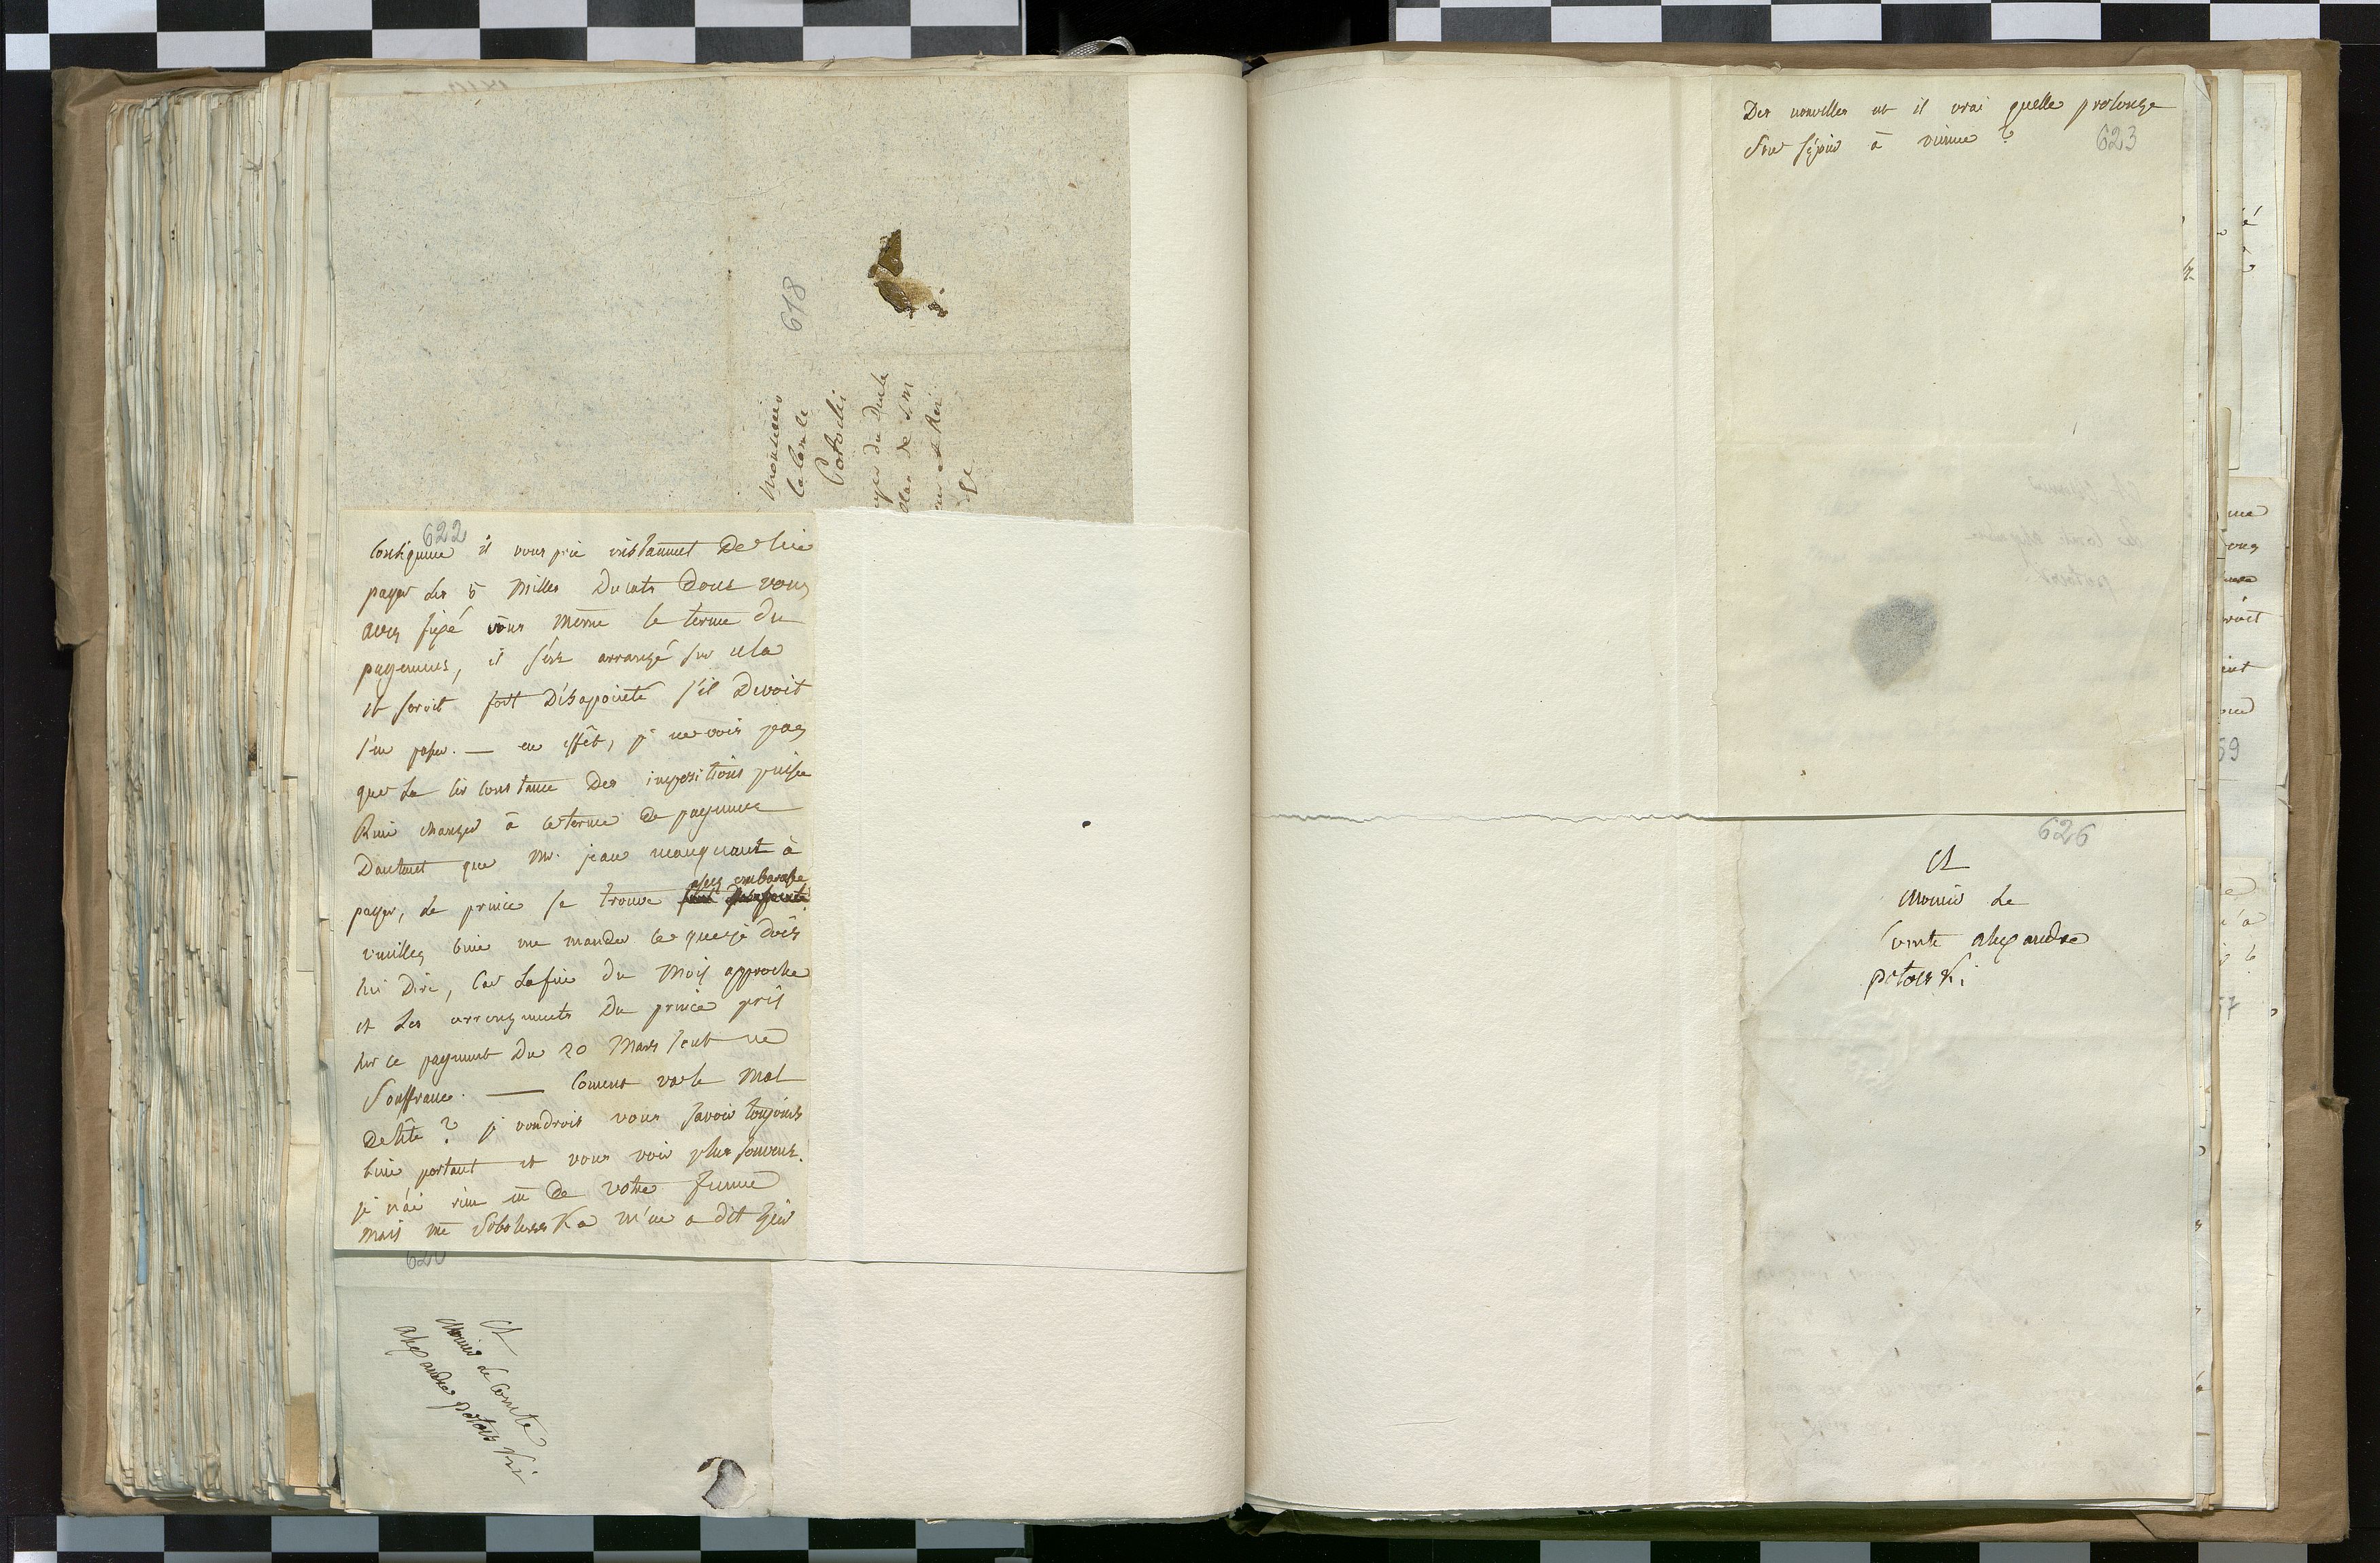 618
Monsieur
le Comte
Potocki
du Duché
de S. M.
et Roi
&c
622
Conséquence il vous prie instament De lui
payer les 5 Milles Ducats Dont vous
avez fixé vous même le terme Du
payement, il s'est arrangé sur cela
et seroit fort Désapointé s'il Devoit
s'en passer. — en effêt, je ne vois pas
que la circonstance Des impositions puisse
Rien changer à ce terme de payement
D'autant que Mr. jean manquant à
payer, le prince se trouve assez embarassé
veuillez bien me mander ce que je dois
lui Dire, Car la fin du Mois approche
et les arrengements Du prince pris
sur ce payment Du 20 Mars sont en
Souffrance. — Coment va le Mal
De tête ? je voudrois vous savoir toujours
bien portant et vous voir plus souvent.
je n'ai rien eu de votre femme
Mais me Sobolewska m'en a dit hier
620
A
Monsie le Comte
alexandre potocki
Des nouvelles est il vrai quelle prolonge
Son séjour à vienne ?
623
626
A
Monsie le
Comte alexandre
potocki
59
57